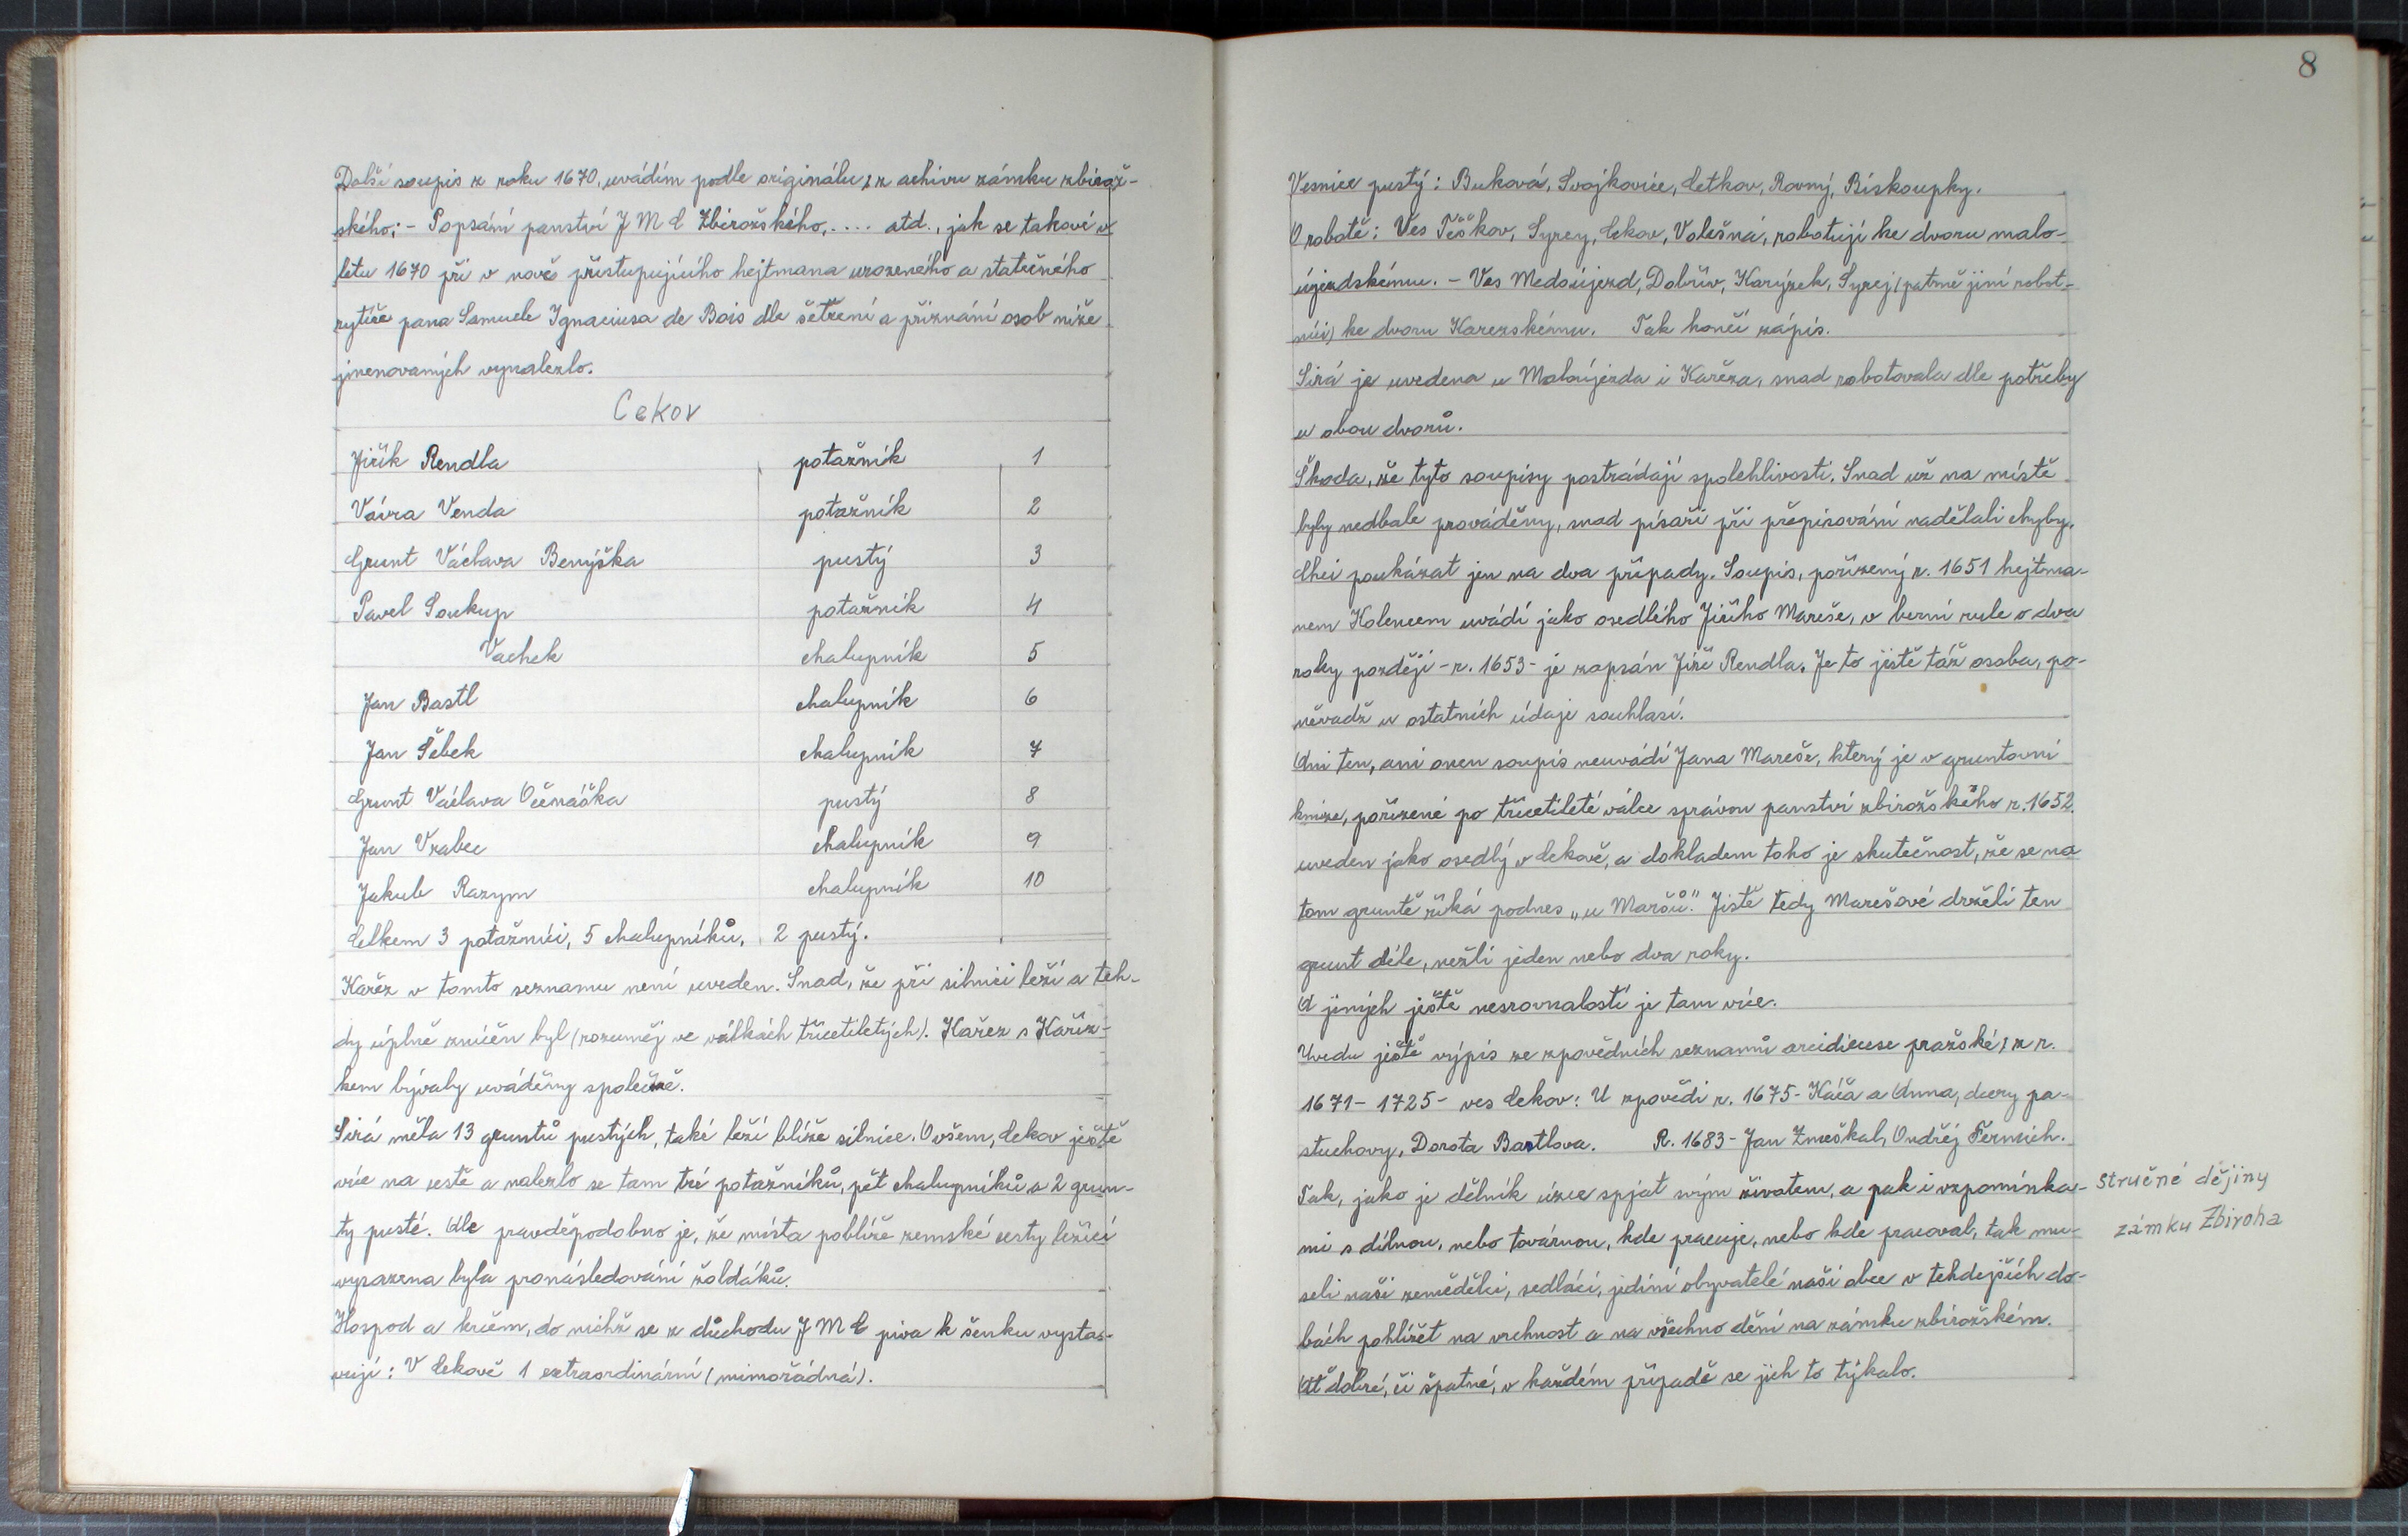 Další soupis z roku 1670, uvádím podle originálu z achivu zámku zbirož-
ského: - Popsání panství J M C Zbirožského, .... atd., jak se takové v
létu 1670 při v nově přistupujícího hejtmana urozeného a statečného
rytíře pana Samuele Ignaciusa de Bois dle šetření a přiznání osob níže
jmenovaných vynalezlo.
Cekov
Jiřík Rendla potažník 1
Vávra Venda potažník 2
Grunt Václava Benýška pustý 3
Pavel Soukup potažník 4
Vachek chalupník 5
Jan Bastl chalupník 6
Jan Šebek chalupník 7
Grunt Václava Očenáška pustý 8
Jan Vrabec chalupník 9
Jakub Razym chalupník 10
Celkem 3 potažníci, 5 chalupníků, 2 pustý.
Kařez v tomto seznamu není uveden. Snad, že při silnici leží a teh-
dy úplně zničen byl (rozuměj ve válkách třicetiletých). Kařez s Kaříz-
kem bývaly uváděny společně.
Sirá měla 13 gruntů pustých, také leží blíže silnice. Ovšem, Cekov ještě
více na cestě a nalezlo se tam tré potažníků, pět chalupníků a 2 grun-
ty pusté. Ale pravděpodobno je, že místa poblíže zemské cesty ležící
vyrazena byla pronásledování žoldáků.
Hospod a krčem, do nichž se z důchodu J M C piva k šenku vysta-
vují: V Cekově 1 extraordinární (mimořádná).
8
Vesnice pustý: Buková, Svojkovice, Cetkov, Rovný, Biskoupky.
O robotě: Ves Těškov, Syrey, Cekov, Volešná, robotují ke dvoru malo-
újezdskému. - Ves Medoújezd, Dobřiv, Karýzek, Syrej (patrně jiní robot-
níci) ke dvoru Karezskému. Tak končí zápis.
Sirá je uvedena u Maloújezda i Kařeza, snad robotovala dle potřeby
u obou dvorů.
Škoda, že tyto soupisy postrádají spolehlivosti. Snad už na místě
byly nedbale prováděny, snad písaři při přepisování nadělali chyby.
Chci poukázat jen na dva případy. Soupis, pořízený r. 1651 hejtma-
nem Kolencem uvádí jako osedlého Jiřího Mareše, v berní rule o dva
roky později - r. 1653 - je zapsán Jiří Rendla. Je to jistě táž osoba, po-
něvadž u ostatních údaje souhlasí.
Ani ten, ani onen soupis neuvádí Jana Mareše, který je v gruntovní
knize, pořízené po třicetileté válce správou panství zbirožského r. 1652.
uveden jako osedlý v Cekově, a dokladem toho je skutečnost, že se na
tom gruntě říká podnes „u Maršů." Jistě tedy Marešové drželi ten
grunt déle, nežli jeden nebo dva roky.
A jiných ještě nesrovnalostí je tam více.
Uvedu ještě výpis ze zpovědních seznamů arcidiecese pražské z r.
1671 - 1725 - ves Cekov: U zpovědi r. 1675 - Káča a Anna, dcery pa-
stuchovy, Dorota Bartlova. R. 1683 - Jan Zmeškal, Ondřej Fermich.
Tak, jako je dělník úzce spjat svým životem, a pak i vzpomínka-
mi s dílnou, nebo továrnou, kde pracuje, nebo kde pracoval, tak mu-
seli naši zemědělci, sedláci, jediní obyvatelé naší obce v tehdejších do-
bách pohlížet na vrchnost a na všechno dění na zámku zbirožském.
Ať dobré, či špatné, v každém případě se jich to týkalo.
stručné dějiny
zámku Zbiroha